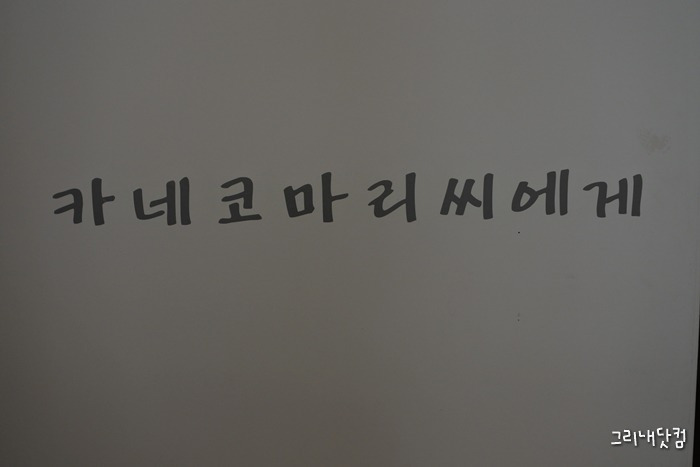 카네코마리씨에게
그리내닷컴